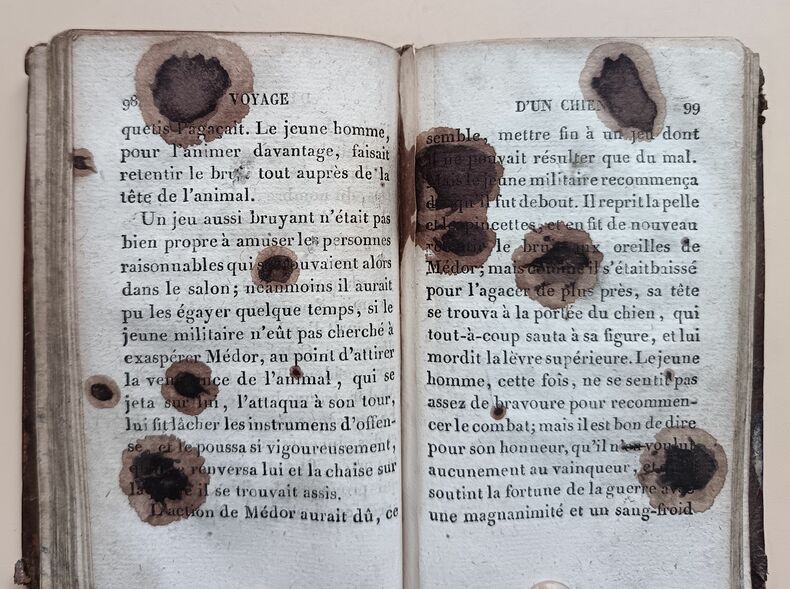 98 VOYAGE
quetis l'agaçait. Le jeune homme,
pour l'animer davantage, faisait
retentir le bruit tout auprès de la
tête de l'animal.
Un jeu aussi bruyant n'était pas
bien propre à amuser les personnes
raisonnables qui se trouvaient alors
dans le salon; néanmoins il aurait
pu les égayer quelque temps, si le
jeune militaire n'eût pas cherché à
exaspérer Médor, au point d'attirer
la vengeance de l'animal, qui se
jeta sur lui, l'attaqua à son tour,
lui fit lâcher les instrumens d'offen-
se, et le poussa si vigoureusement,
renversa lui et la chaise sur
il se trouvait assis.
L'action de Médor aurait dû, ce
D'UN CHIEN 99
semble, mettre fin à un jeu dont
il ne pouvait résulter que du mal.
Mais le jeune militaire recommença
dès qu'il fut debout. Il reprit la pelle
et les pincettes, et en fit de nouveau
retentir le bruit aux oreilles de
Médor; mais comme il s'était baissé
pour l'agacer de plus près, sa tête
se trouva à la portée du chien, qui
tout-à-coup sauta à sa figure, et lui
mordit la lèvre supérieure. Le jeune
homme, cette fois, ne se sentit pas
assez de bravoure pour recommen-
cer le combat; mais il est bon de dire
pour son honneur, qu'il n'en voulut
aucunement au vainqueur, et
soutint la fortune de la guerre avec
une magnanimité et un sang-froid